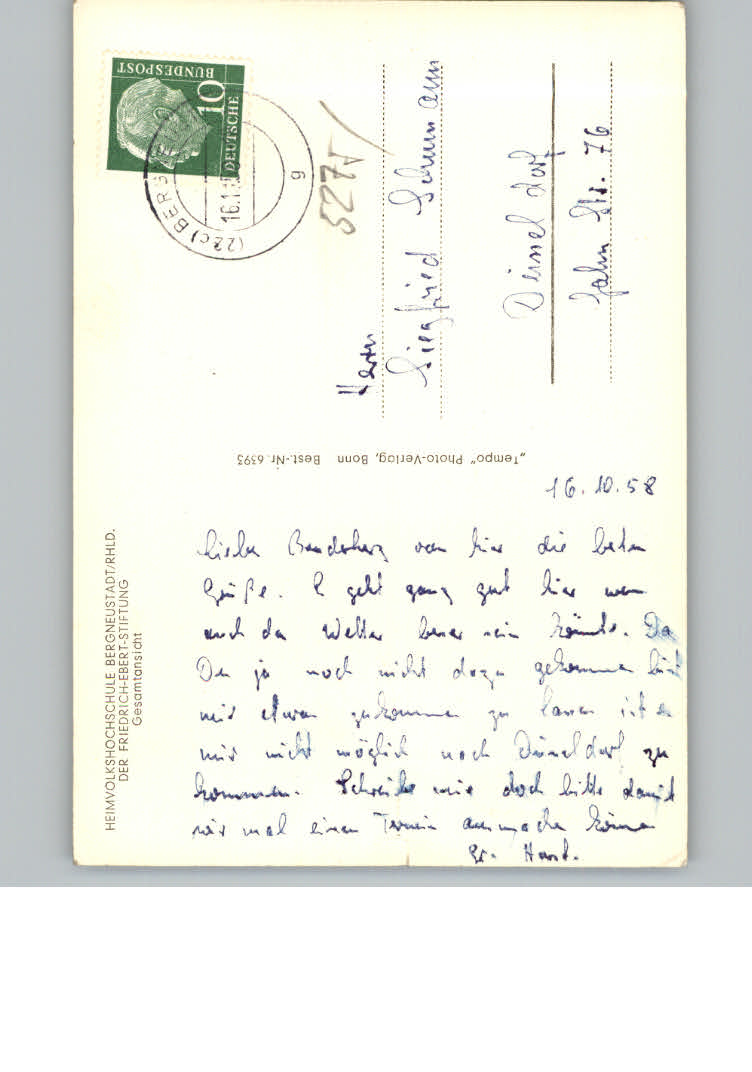 HEIMVOLKSHOCHSCHULE BERGNEUSTADT/RHLD.
DER FRIEDRICH-EBERT-STIFTUNG
Gesamtansicht
16.10.58
von hier die besten
Grüße. Es geht ganz gut hier wenn
auch das Wetter besser sein könnte. Da
Du ja noch nicht dazu gekommen bist
mir etwas zukommen zu lassen ist es
mir nicht möglich nach Düsseldorf zu
kommen. Schreibe mir doch bitte damit
wir mal einen Termin ausmachen können
Horst.
"Tempo" Photo-Verlag, Bonn Best.-Nr. 6393
DEUTSCHE
BUNDESPOST
10
(22c) BERG
16.1
g
5275
Herrn
Siegfried Schumann
Düsseldorf
Jahn Str. 76